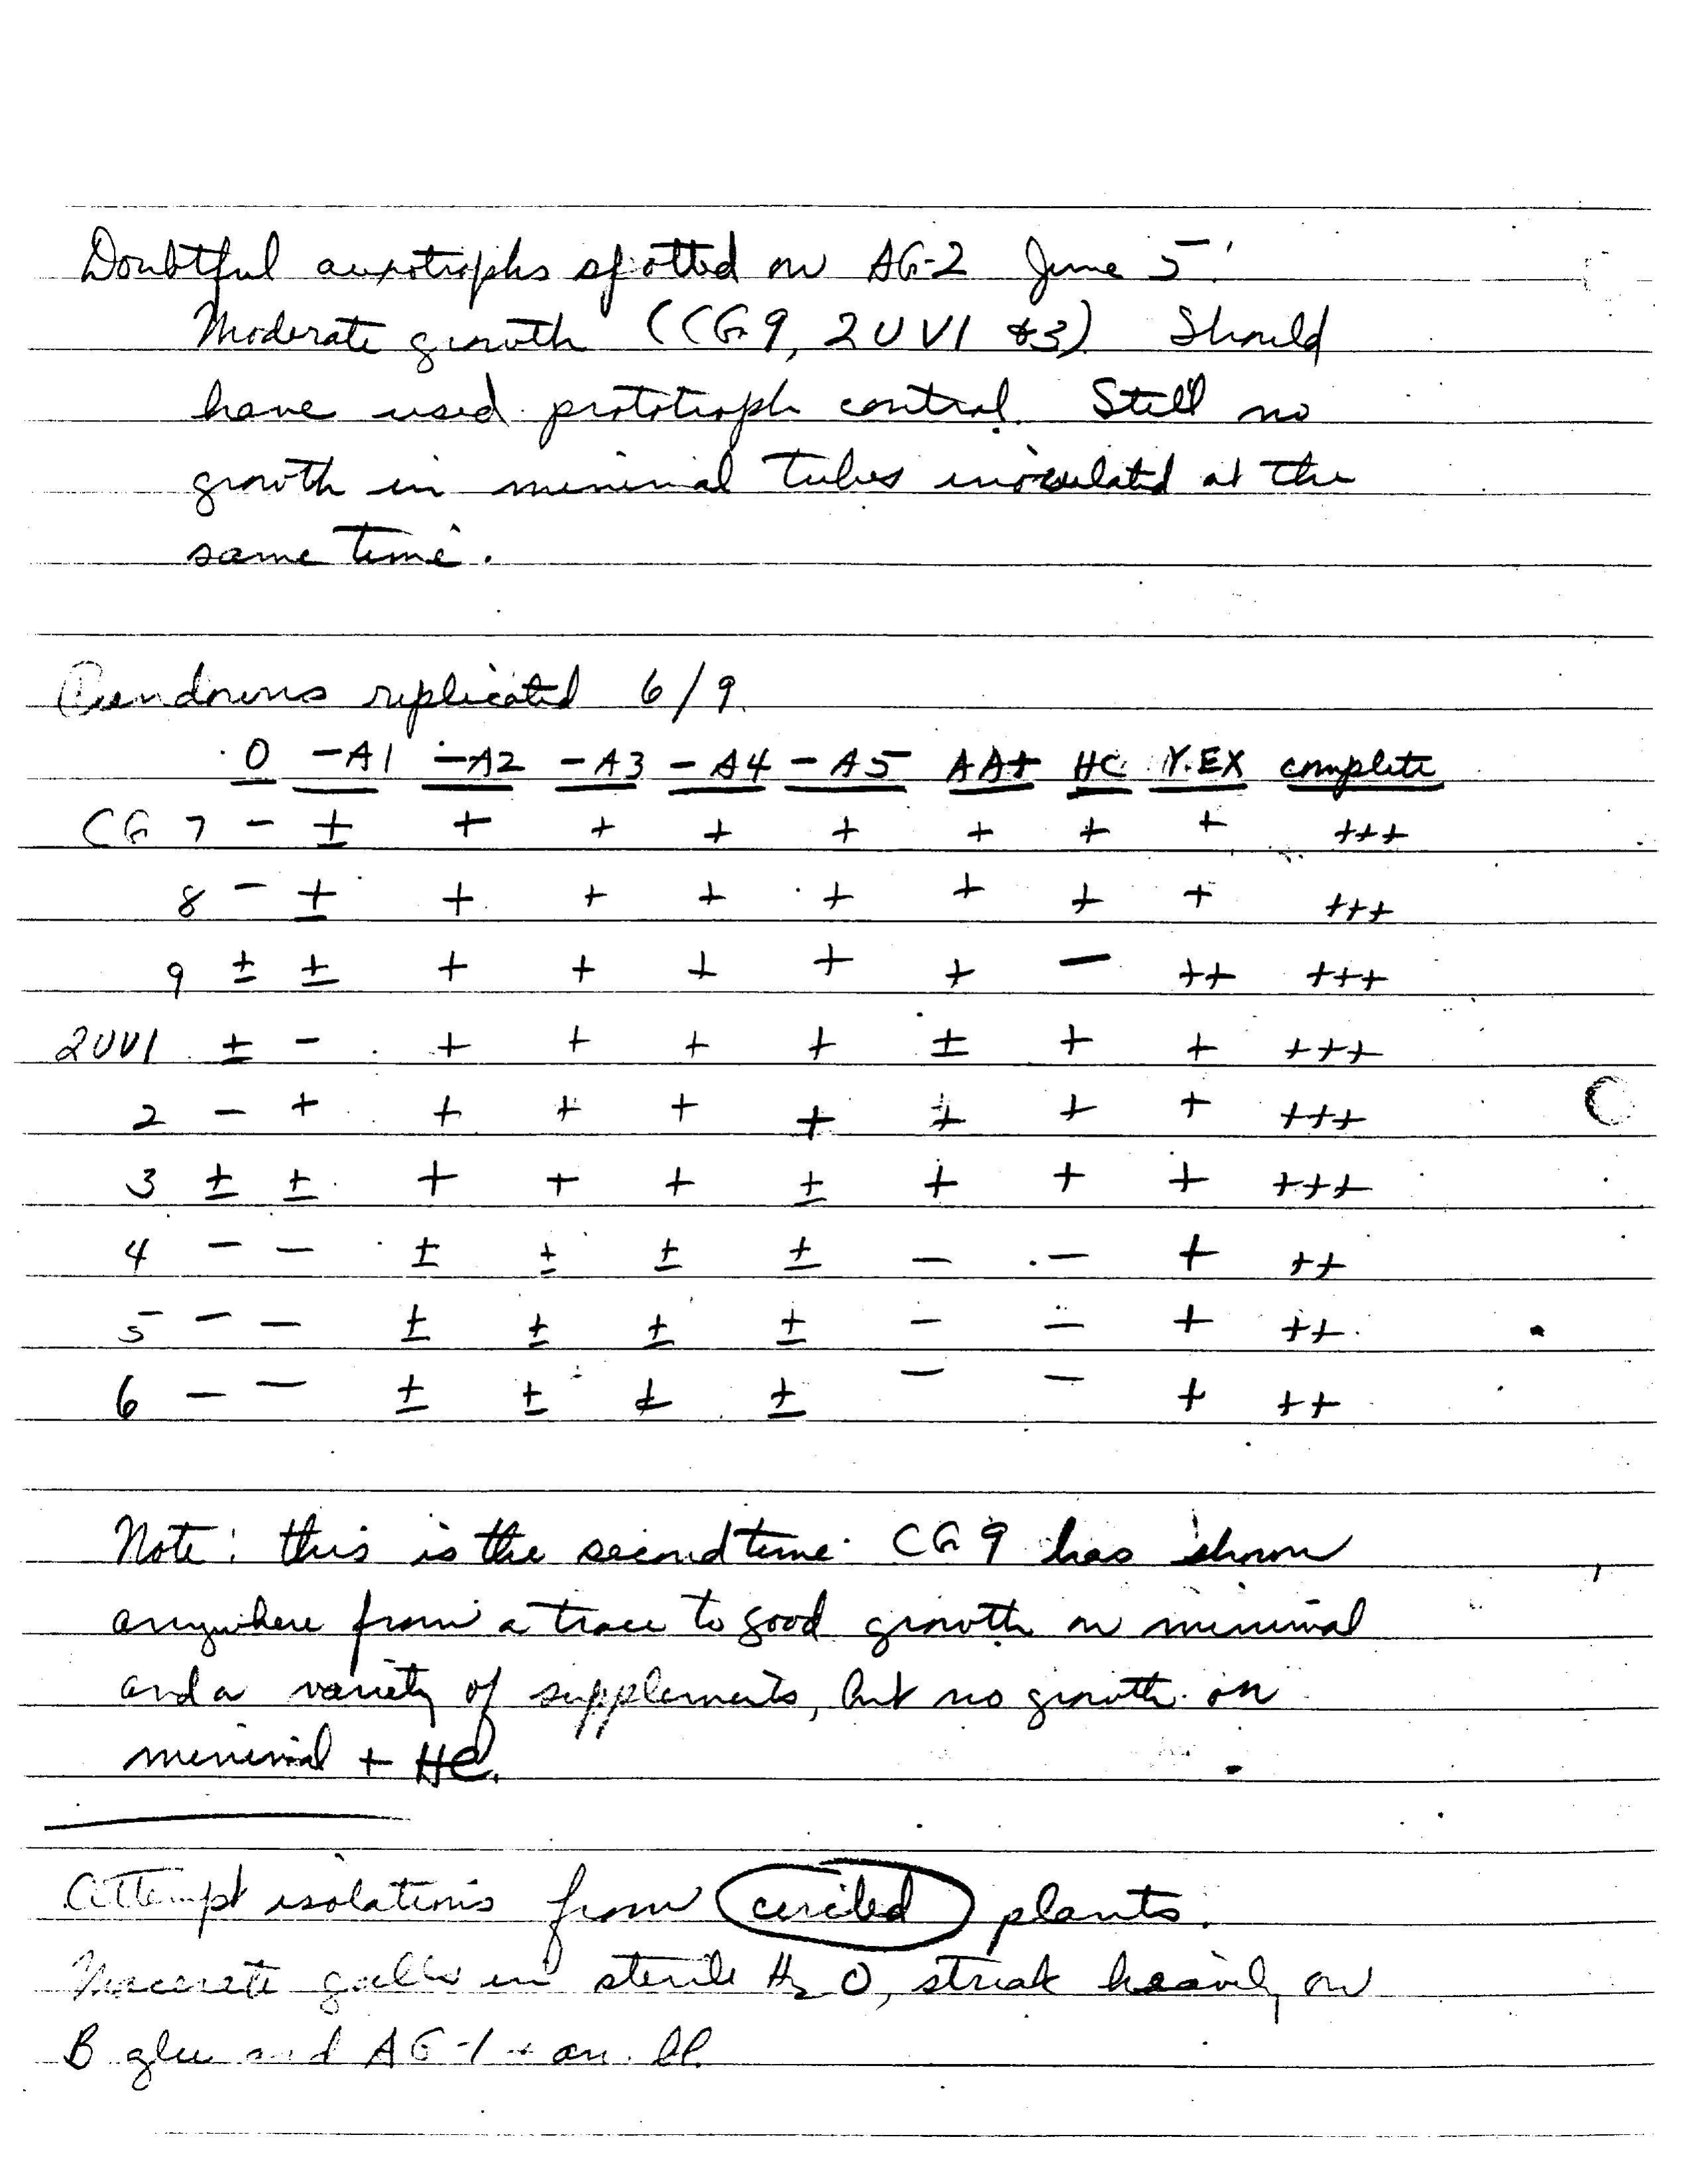 Doubtful auxotrophs spotted on AG-2 June 5.
Moderate growth (CG 9, 2UV1 &3) Should
have used prototroph control. Still no
growth in minimal tubes inoculated at the
same time.
Rundowns replicated 6/9.
O -A1 -A2 -A3 -A4 -A5 AA+ HC Y.EX complete
CG 7 - ± + + + + + + + +++
8 - ± + + + + + + + +++
9 ± ± + + + + + - ++ +++
2UV1 ± - + + + + ± + + +++
2 - + + + + + ± + + +++
3 ± ± + + + ± + + + +++
4 - - ± ± ± ± - - + ++
5 - - ± ± ± ± - - + ++
6 - - ± ± ± ± - - + ++
Note: this is the second time CG 9 has shown
anywhere from a trace to good growth on minimal
and a variety of supplements, but no growth on
minimal + HC.
Attempt isolations from circled plants.
Macerate galls in sterile H2O, streak heavily on
B glu and AG-1 + an. bl.